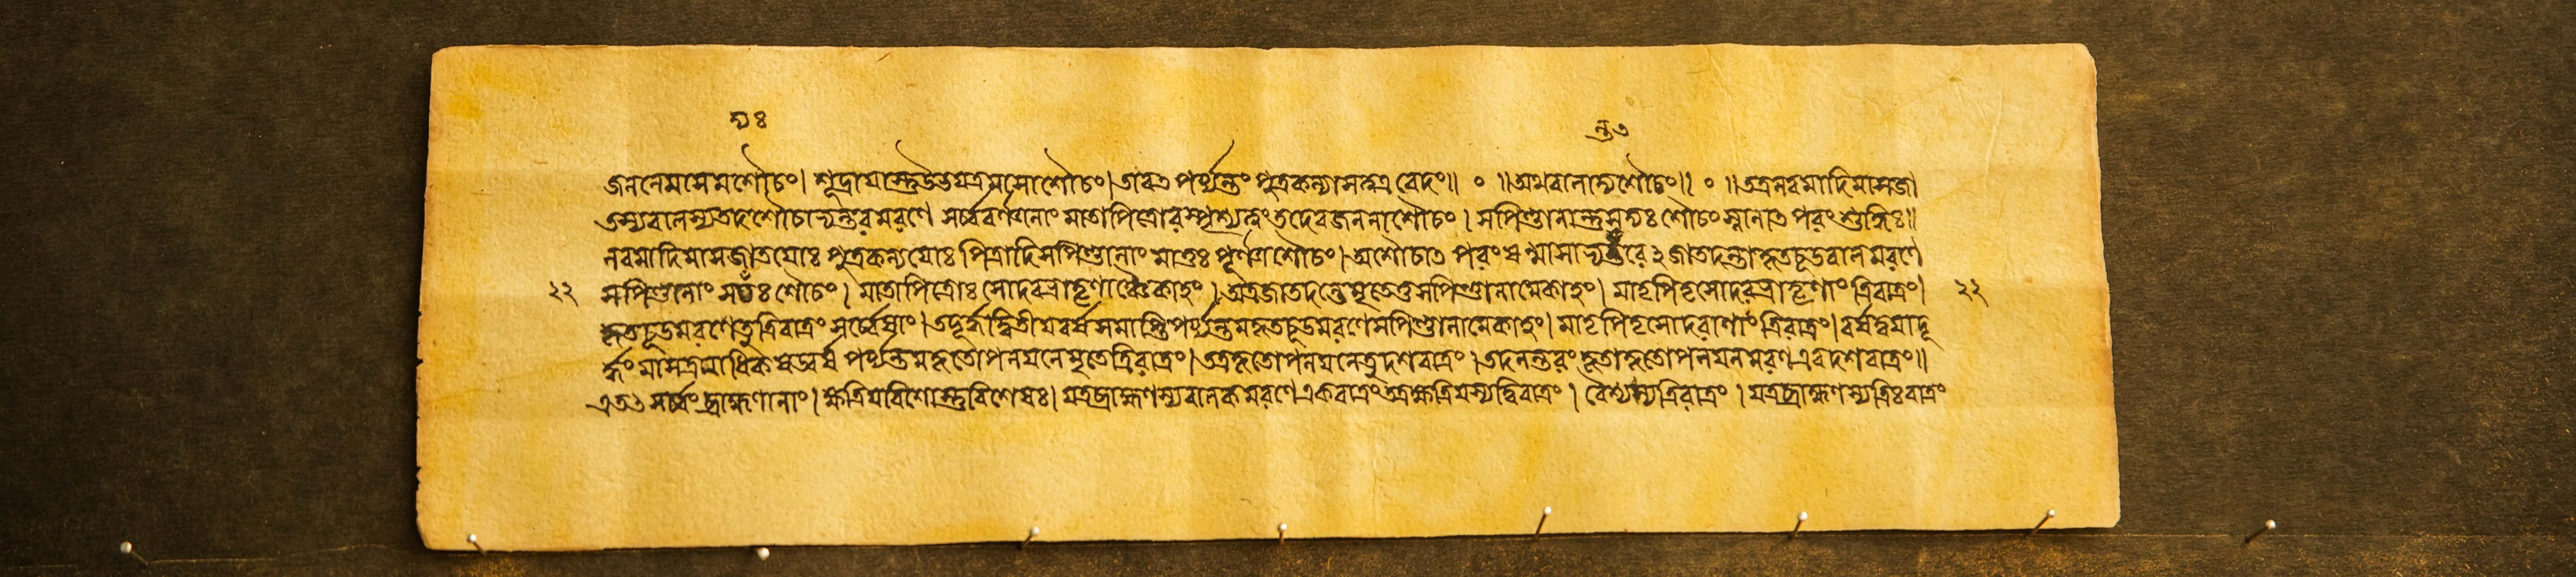 ন্যঃ
ন্তুৎ
জননেমমেমশৌচং। শূদ্রাযাস্তুউভযত্রমমোশৌচং। তাবৎ পর্য্যন্তং পুত্রকন্যামন্তত্র বেদং॥ ০ ॥অথবালান্যশৌচং॥ ০ ॥তত্রনবমাদিমাসজা
তস্যবালস্যতদশৌচাভ্যন্তরমরণে সর্ব্ববর্ণানাং মাতাপিত্রোরস্পৃশ্যত্বং তদেবজননাশৌচং। সপিণ্ডানান্তুসদ্যঃ শৌচং স্নানাৎ পরং শুদ্ধিঃ॥
নবমাদিমাসজাতযোঃ পুত্রকন্যযোঃ পিত্রাদিসপিণ্ডানাং মাতুঃ পূর্ণাশৌচং। অশৌচাৎ পরং ষন্মাসাভ্যন্তরে২জাতদন্তাকৃতচূডবালমরণে
২২ সপিণ্ডানাং সদ্যঃ শৌচং। মাতাপিত্রোঃ সোদরভ্রাতৃণাঞ্চৈকাহং। অত্রজাতদন্তেমৃতেতুসপিণ্ডানামেকাহং। মাতৃপিতৃসোদরভ্রাতৃণাং ত্রিরাত্রং। ২২
কৃতচূডমরণেতুত্রিরাত্রং সর্ব্বেষাং। তদূর্দ্ধাদ্বিতীযবর্ষসমাপ্তিপর্য্যন্তমকৃতচূডমরণেসপিণ্ডানামেকাহং। মাতৃপিতৃসোদরাণাং ত্রিরাত্রং। বর্ষদ্বযাদূ
র্দ্ধং মাসত্রযাধিকষড্বর্ষ পর্য্যন্তমকৃতোপনযনেমৃতেত্রিরাত্রং। তত্রকৃতোপনযনেতুদশরাত্রং। তদনন্তরং কৃতাকৃতোপনযনমরণএবদশরাত্রং॥
এতৎ সর্ব্বং ব্রাহ্মণানাং। ক্ষত্রিযবিশোস্তুবিশেষঃ। যত্রব্রাহ্মণস্যবালকমরণেএকরাত্রং তত্রক্ষত্রিযস্যদ্বিরাত্রং। বৈশ্যস্যত্রিরাত্রং। যত্রব্রাহ্মণস্যত্রিঃরাত্রং